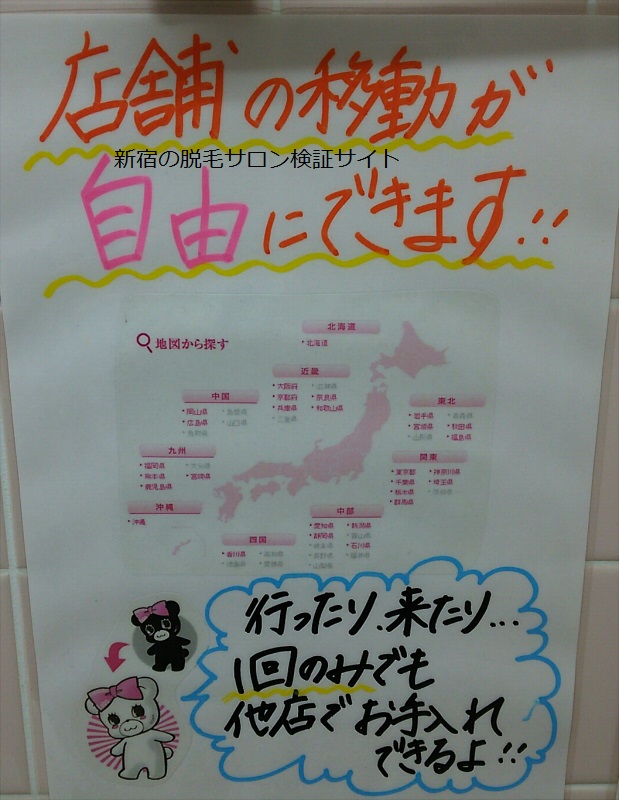 店舗の移動が
新宿の脱毛サロン検証サイト
自由にできます!!
地図から探す
北海道
・北海道
近畿
・大阪府
・京都府 ・奈良県
・兵庫県 ・和歌山県
三重県
中国
・岡山県 島根県
・広島県 山口県
鳥取県
東北
・岩手県 青森県
・宮城県 ・秋田県
山形県 ・福島県
九州
・福岡県 大分県
・熊本県 ・宮崎県
・鹿児島県
関東
・東京都 ・神奈川県
・千葉県 ・埼玉県
・栃木県
・群馬県
沖縄
・沖縄
中部
・愛知県 ・新潟県
・静岡県 富山県
岐阜県 ・石川県
長野県 福井県
山梨県
四国
・香川県 高知県
徳島県 愛媛県
行ったり、来たり...
1回のみでも
他店でお手入れ
できるよ!!